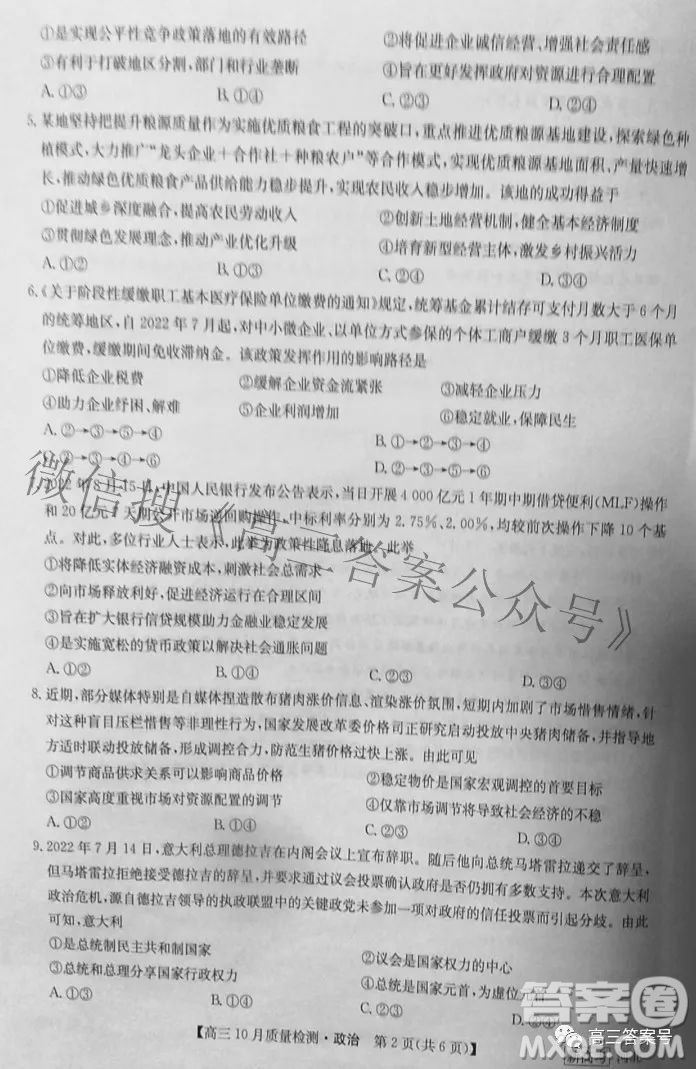 ①是实现公平性竞争政策落地的有效路径 ②将促进企业诚信经营、增强社会责任感
③有利于打破地区分割、部门和行业垄断 ④旨在更好发挥政府对资源进行合理配置
A. ①③ B. ①④ C. ②③ D. ②④
5. 某地坚持把提升粮源质量作为实施优质粮食工程的突破口,重点推进优质粮源基地建设,探索绿色种
植模式,大力推广“龙头企业+合作社+种粮农户”等合作模式,实现优质粮源基地面积、产量快速增
长,推动优质粮食产品供给能力稳步提升,实现农民收入稳步增加。该地的成功得益于
①促进城乡深度融合,提高农民劳动收入 ②创新土地经营机制,健全基本经济制度
③贯彻绿色发展理念,推动产业优化升级 ④培育新型经营主体,激发乡村振兴活力
A. ①② B. ①③ C. ②④ D. ③④
6.《关于阶段性缓缴职工基本医疗保险单位缴费的通知》规定,统筹基金累计结存可支付月数大于 6 个月
的统筹地区,自 2022 年 7 月起,对中小微企业、以单位方式参保的个体工商户缓缴 3 个月职工医保单
位缴费,缓缴期间免收滞纳金。该政策发挥作用的影响路径是
①降低企业税费 ②缓解企业资金流紧张 ③减轻企业压力
④助力企业纾困、解难 ⑤企业利润增加 ⑥稳定就业,保障民生
A. ②→③→⑤→④ B. ①→③→④→⑥
C. ②→③→④→⑥ D. ②→①→④→⑥
2022 年 8 月 15 日,中国人民银行发布公告表示,当日开展 4 000 亿元 1 年期中期借贷便利(MLF)操作
和 20 亿元 7 天期公开市场逆回购操作,中标利率分别为 2.75%、2.00%,均较前次操作下降 10 个基
点。对此,多位行业人士表示,此举为政策性降息落地。此举
①将降低实体经济融资成本,刺激社会总需求
②向市场释放利好,促进经济运行在合理区间
③旨在扩大银行信贷规模助力金融业稳定发展
④是实施宽松的货币政策以解决社会通胀问题
A. ①② B. ①④ C. ②③ D. ③④
8. 近期,部分媒体特别是自媒体捏造散布猪肉涨价信息、渲染涨价氛围,短期内加剧了市场惜售情绪,针
对这种盲目压栏惜售等非理性行为,国家发展改革委价格司正研究启动投放中央猪肉储备,并指导地
方适时联动投放储备,形成调控合力,防范生猪价格过快上涨。由此可见
①调节商品供求关系可以影响商品价格 ②稳定物价是国家宏观调控的首要目标
③国家高度重视市场对资源配置的调节 ④仅靠市场调节将导致社会经济的不稳
A. ①② B. ①④ C. ②③ D. ③④
9. 2022 年 7 月 14 日,意大利总理德拉吉在内阁会议上宣布辞职。随后他向总统马塔雷拉递交了辞呈,
但马塔雷拉拒绝接受德拉吉的辞呈,并要求通过议会投票确认政府是否仍有足够多数支持。本次意大利
政治危机,源自德拉吉领导的执政联盟中的关键政党未参加一项对政府的信任投票而引起分歧。由此
可知,意大利
①是总统制民主共和制国家 ②议会是国家权力的中心
③总统和总理分享国家行政权力 ④总统是虚位元首
A. ①② B. ①③ C. ②④ D. ③④
【高三 10 月质量检测·政治 第 2 页(共 6 页)】
微信搜《高三答案公众号》
答案圈
高三答案号